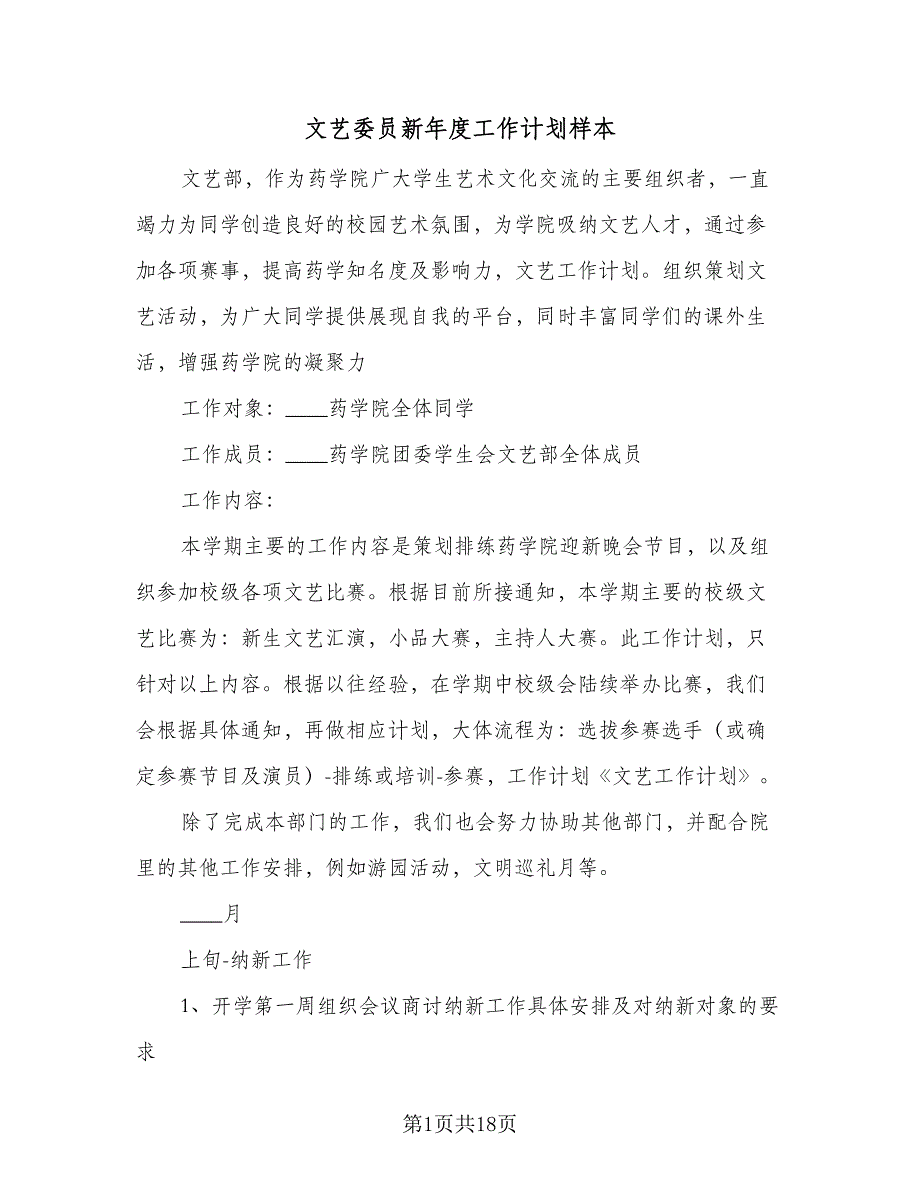 文艺委员新年度工作计划样本
文艺部，作为药学院广大学生艺术文化交流的主要组织者，一直
竭力为同学创造良好的校园艺术氛围，为学院吸纳文艺人才，通过参
加各项赛事，提高药学知名度及影响力，文艺工作计划。组织策划文
艺活动，为广大同学提供展现自我的平台，同时丰富同学们的课外生
活，增强药学院的凝聚力
工作对象：____药学院全体同学
工作成员：____药学院团委学生会文艺部全体成员
工作内容：
本学期主要的工作内容是策划排练药学院迎新晚会节目，以及组
织参加校级各项文艺比赛。根据目前所接通知，本学期主要的校级文
艺比赛为：新生文艺汇演，小品大赛，主持人大赛。此工作计划，只
针对以上内容。根据以往经验，在学期中校级会陆续举办比赛，我们
会根据具体通知，再做相应计划，大体流程为：选拔参赛选手（或确
定参赛节目及演员）-排练或培训-参赛，工作计划《文艺工作计划》。
除了完成本部门的工作，我们也会努力协助其他部门，并配合院
里的其他工作安排，例如游园活动，文明巡礼月等。
____月
上旬-纳新工作
1、开学第一周组织会议商讨纳新工作具体安排及对纳新对象的要
求
第1页共18页